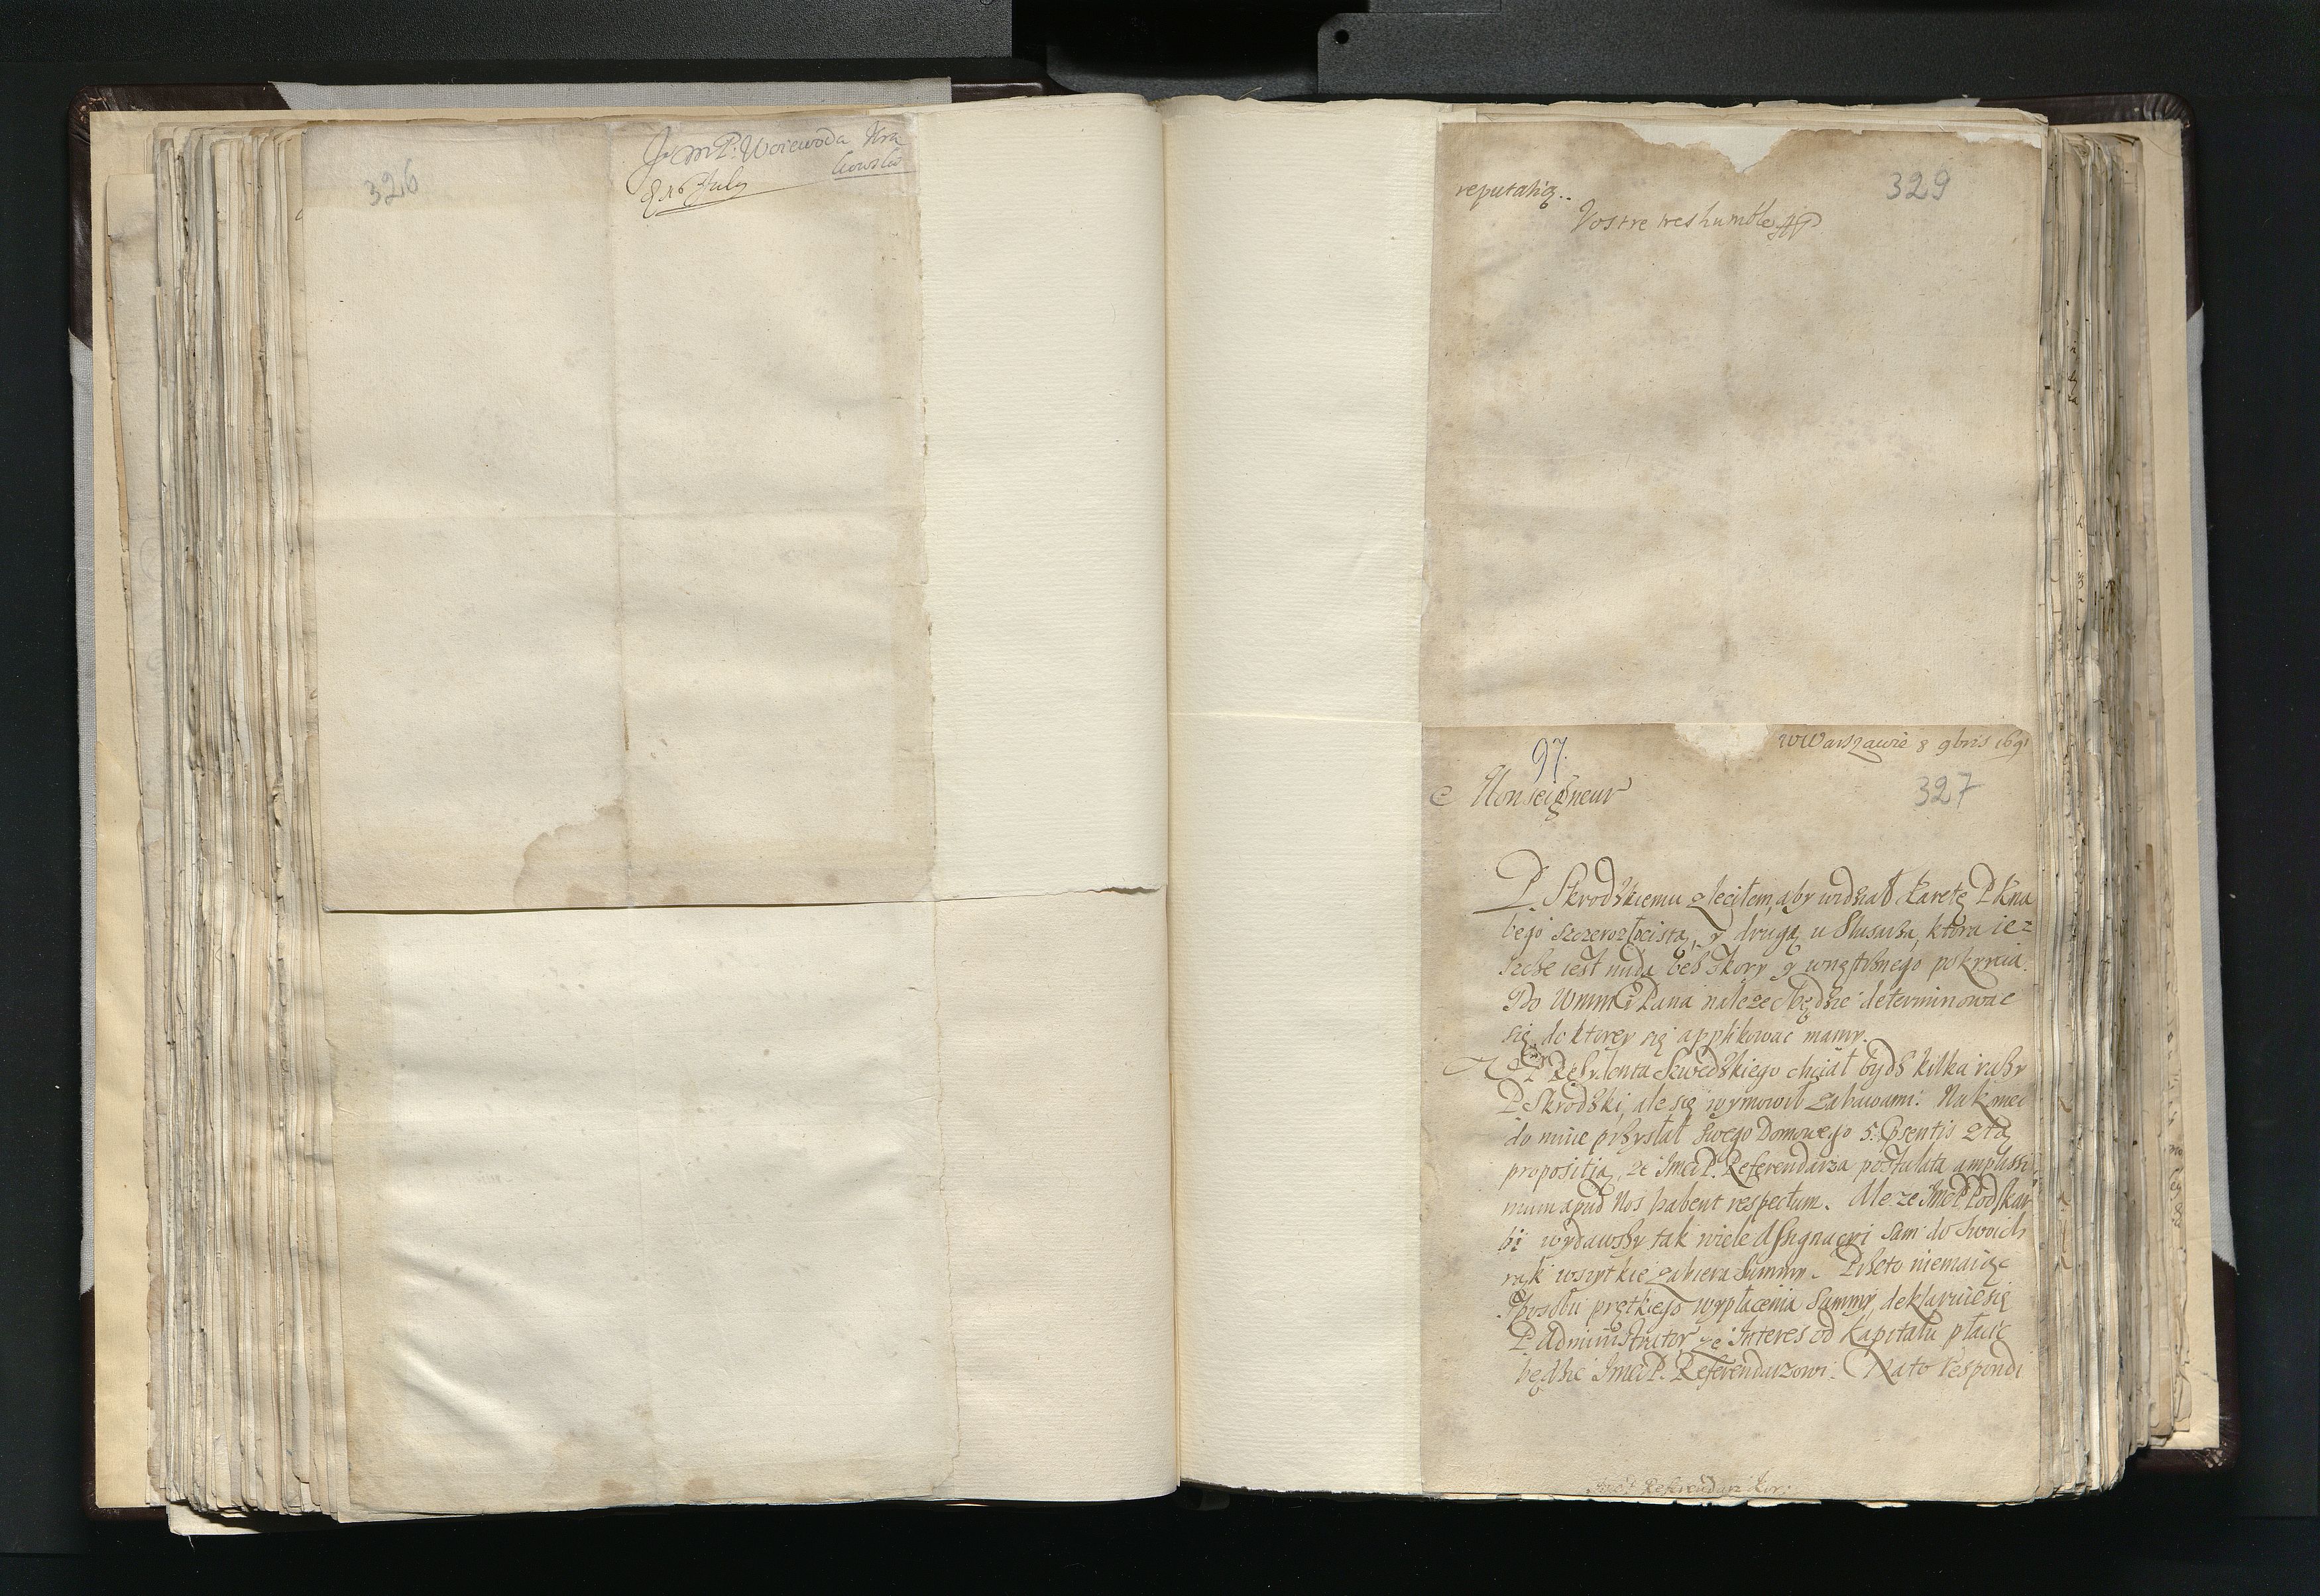 326
JmP: Woiewoda Kra
kowski
16 July
329
reputatią..
Vostre tres humble
97.
w Warszawie 8 9bris 1691
327
Monseigneur
P. Skrodzkiemu zleciłem, aby widział karetę P Kna
bego szczerozłocistą, y drugą u Slusarza, ktora ie=
szcze iest nuda bez skory y wnętrznego pokrycia.
Do WmmP Pana nalezec będzie determinowac
się, do ktorey się applikowac mamy.
U P Residenta Szwedzkiego chciał bydz kilka razy
P Skrodzki, ale się wymowił zabawami. Nakoniec
do mnie przysłał swego Domowego 5. Psentis z tą
propositią, ze JmciP. Referendarza postulata amplissi
mum apud Nos habent respectum. Ale ze JmcP. Podskar
bi wydawszy tak wiele Assignacyi sam do swoich
rąk wszytkie zabiera Summy. Przeto niemaiąc
sposobu prętkiego wypłacenia Summy, deklaruie się
P. Administrator, ze Interes od kapitału płacic
będzie JmciP. Referendarzowi. Na to respondi
JmcP Referendarz Kor: